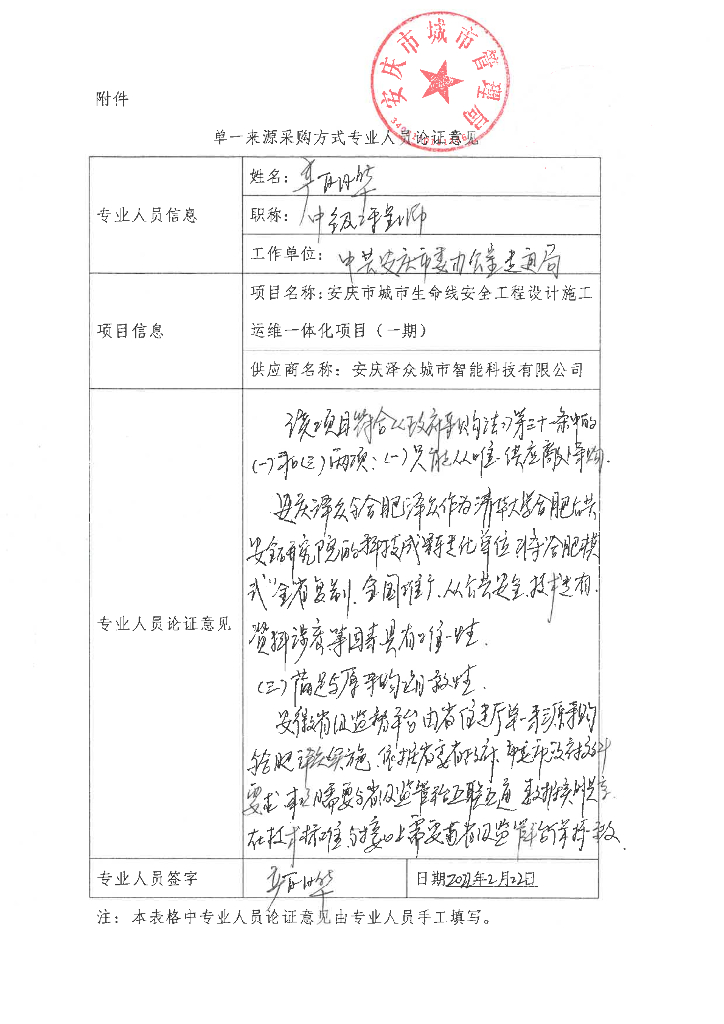 安庆市城市管理局
附件
单一来源采购方式专业人员论证意见
专业人员信息
姓名:
职称: 中级工程师
工作单位: 中共安庆市委办公室专通局
项目信息
项目名称:安庆市城市生命线安全工程设计施工
运维一体化项目(一期)
供应商名称: 安庆泽众城市智能科技有限公司
专业人员论证意见
该项目符合《政府采购法》第三十一条中的
(一)和(三)两项:(一)只能从唯一供应商处采购.
安庆泽众与合肥泽众作为清华大学合肥公共
安全研究院的科技成果转化单位,将“合肥模
式”全省复制、全国推广,从公共安全、技术专利、
资料涉密等因素具有唯一性.
(三)满足与原采购的一致性.
安徽省级监管平台由省住建厅单一来源采购
合肥泽众实施,依据省委省政府、市委市政府
要求,需要与省级监管平台互联互通,数据共享
在技术标准与接口上需要与省级监管平台保持一致.
专业人员签字
日期2022年2月22日
注: 本表格中专业人员论证意见由专业人员手工填写。